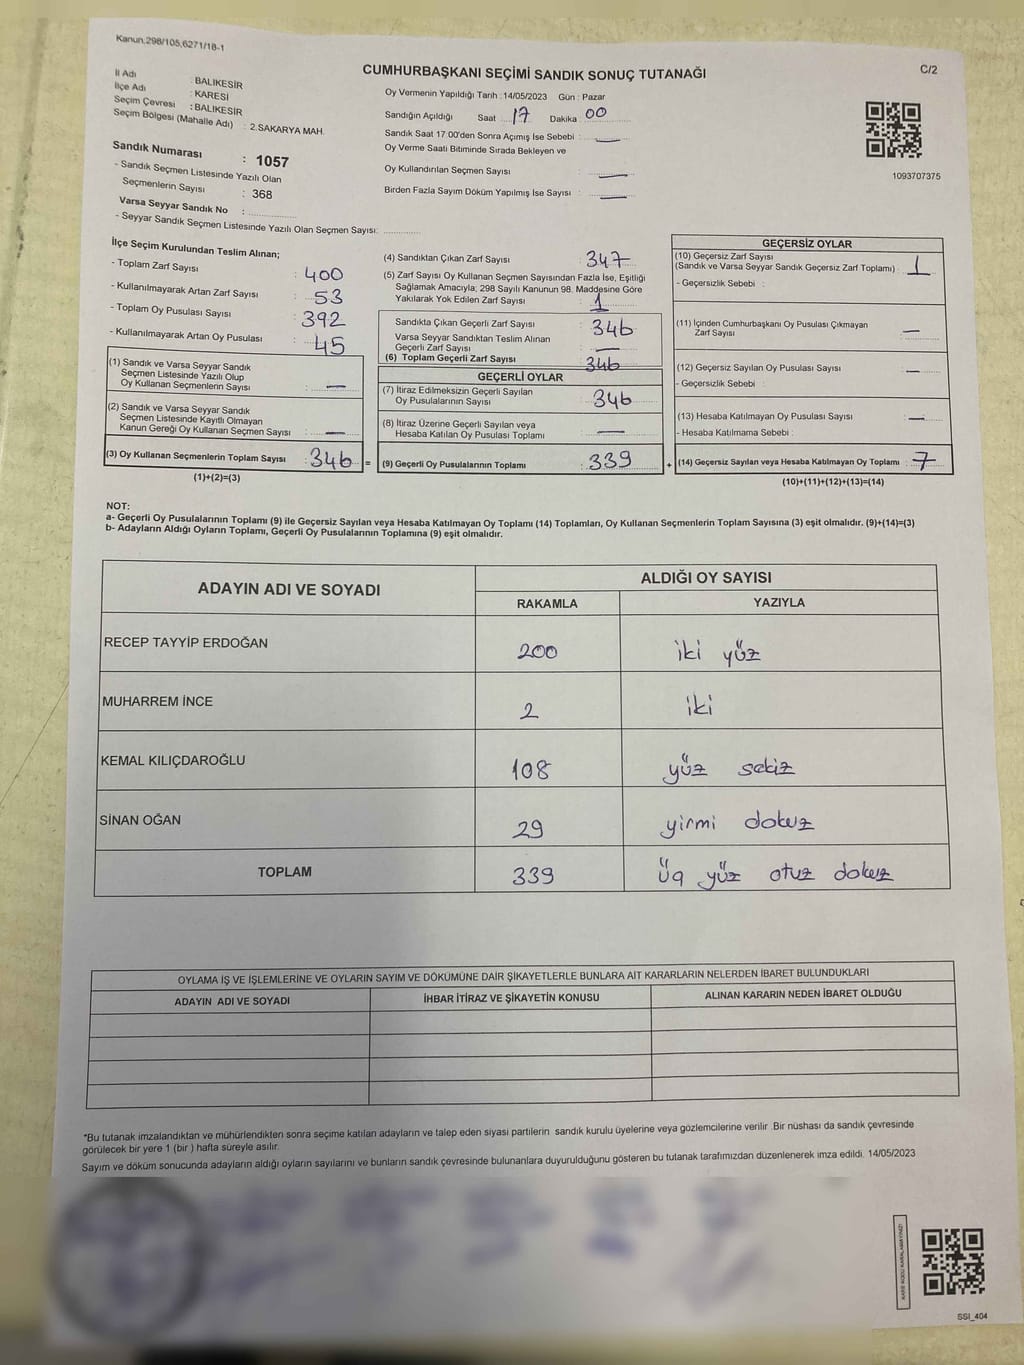 Kanun:298/105,6271/18-1
C/2
CUMHURBAŞKANI SEÇİMİ SANDIK SONUÇ TUTANAĞI
İl Adı : BALIKESİR
İlçe Adı : KARESİ
Seçim Çevresi : BALIKESİR
Seçim Bölgesi (Mahalle Adı) : 2.SAKARYA MAH.
Sandık Numarası : 1057
- Sandık Seçmen Listesinde Yazılı Olan
Seçmenlerin Sayısı : 368
Varsa Seyyar Sandık No :
- Seyyar Sandık Seçmen Listesinde Yazılı Olan Seçmen Sayısı:
Oy Vermenin Yapıldığı Tarih : 14/05/2023 Gün : Pazar
Sandığın Açıldığı Saat 17 Dakika 00
Sandık Saat 17.00'den Sonra Açımış İse Sebebi : —
Oy Verme Saati Bitiminde Sırada Bekleyen ve
Oy Kullandırılan Seçmen Sayısı : —
Birden Fazla Sayım Döküm Yapılmış İse Sayısı : —
1093707375
İlçe Seçim Kurulundan Teslim Alınan;
- Toplam Zarf Sayısı : 400
- Kullanılmayarak Artan Zarf Sayısı : 53
- Toplam Oy Pusulası Sayısı : 392
- Kullanılmayarak Artan Oy Pusulası : 45
(1) Sandık ve Varsa Seyyar Sandık
Seçmen Listesinde Yazılı Olup
Oy Kullanan Seçmenlerin Sayısı : —
(2) Sandık ve Varsa Seyyar Sandık
Seçmen Listesinde Kayıtlı Olmayan
Kanun Gereği Oy Kullanan Seçmen Sayısı : —
(3) Oy Kullanan Seçmenlerin Toplam Sayısı : 346 =
(1)+(2)=(3)
(4) Sandıktan Çıkan Zarf Sayısı : 347
(5) Zarf Sayısı Oy Kullanan Seçmen Sayısından Fazla İse, Eşitliği
Sağlamak Amacıyla; 298 Sayılı Kanunun 98. Maddesine Göre
Yakılarak Yok Edilen Zarf Sayısı : 1
Sandıkta Çıkan Geçerli Zarf Sayısı : 346
Varsa Seyyar Sandıktan Teslim Alınan
Geçerli Zarf Sayısı : —
(6) Toplam Geçerli Zarf Sayısı 346
GEÇERLİ OYLAR
(7) İtiraz Edilmeksizin Geçerli Sayılan
Oy Pusulalarının Sayısı : 346
(8) İtiraz Üzerine Geçerli Sayılan veya
Hesaba Katılan Oy Pusulası Toplamı : —
(9) Geçerli Oy Pusulalarının Toplamı : 339 +
GEÇERSİZ OYLAR
(10) Geçersiz Zarf Sayısı
(Sandık ve Varsa Seyyar Sandık Geçersiz Zarf Toplamı) : 1
- Geçersizlik Sebebi :
(11) İçinden Cumhurbaşkanı Oy Pusulası Çıkmayan
Zarf Sayısı : —
(12) Geçersiz Sayılan Oy Pusulası Sayısı : —
- Geçersizlik Sebebi :
(13) Hesaba Katılmayan Oy Pusulası Sayısı : —
- Hesaba Katılmama Sebebi :
(14) Geçersiz Sayılan veya Hesaba Katılmayan Oy Toplamı : 7
(10)+(11)+(12)+(13)=(14)
NOT:
a- Geçerli Oy Pusulalarının Toplamı (9) ile Geçersiz Sayılan veya Hesaba Katılmayan Oy Toplamı (14) Toplamları, Oy Kullanan Seçmenlerin Toplam Sayısına (3) eşit olmalıdır. (9)+(14)=(3)
b- Adayların Aldığı Oyların Toplamı, Geçerli Oy Pusulalarının Toplamına (9) eşit olmalıdır.
ADAYIN ADI VE SOYADI
ALDIĞI OY SAYISI
RAKAMLA YAZIYLA
RECEP TAYYİP ERDOĞAN 200 iki yüz
MUHARREM İNCE 2 iki
KEMAL KILIÇDAROĞLU 108 yüz sekiz
SİNAN OĞAN 29 yirmi dokuz
TOPLAM 339 üç yüz otuz dokuz
OYLAMA İŞ VE İŞLEMLERİNE VE OYLARIN SAYIM VE DÖKÜMÜNE DAİR ŞİKAYETLERLE BUNLARA AİT KARARLARIN NELERDEN İBARET BULUNDUKLARI
ADAYIN ADI VE SOYADI İHBAR İTİRAZ VE ŞİKAYETİN KONUSU ALINAN KARARIN NEDEN İBARET OLDUĞU
*Bu tutanak imzalandıktan ve mühürlendikten sonra seçime katılan adayların ve talep eden siyasi partilerin sandık kurulu üyelerine veya gözlemcilerine verilir. Bir nüshası da sandık çevresinde
görülecek bir yere 1 (bir ) hafta süreyle asılır.
Sayım ve döküm sonucunda adayların aldığı oyların sayılarını ve bunların sandık çevresinde bulunanlara duyurulduğunu gösteren bu tutanak tarafımızdan düzenlenerek imza edildi. 14/05/2023
KARE KODU KARALAMAYINIZ!
SSI_404